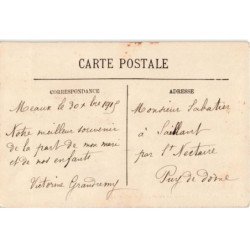 CARTE POSTALE
CORRESPONDANCE
Meaux le 30 Xbre 1915
Notre meilleur souvenir
de la part de mon mari
et de nos enfants
Victorine Grandremy
ADRESSE
Monsieur Sabatier
à Saillant
par St Nectaire
Puy de dôme